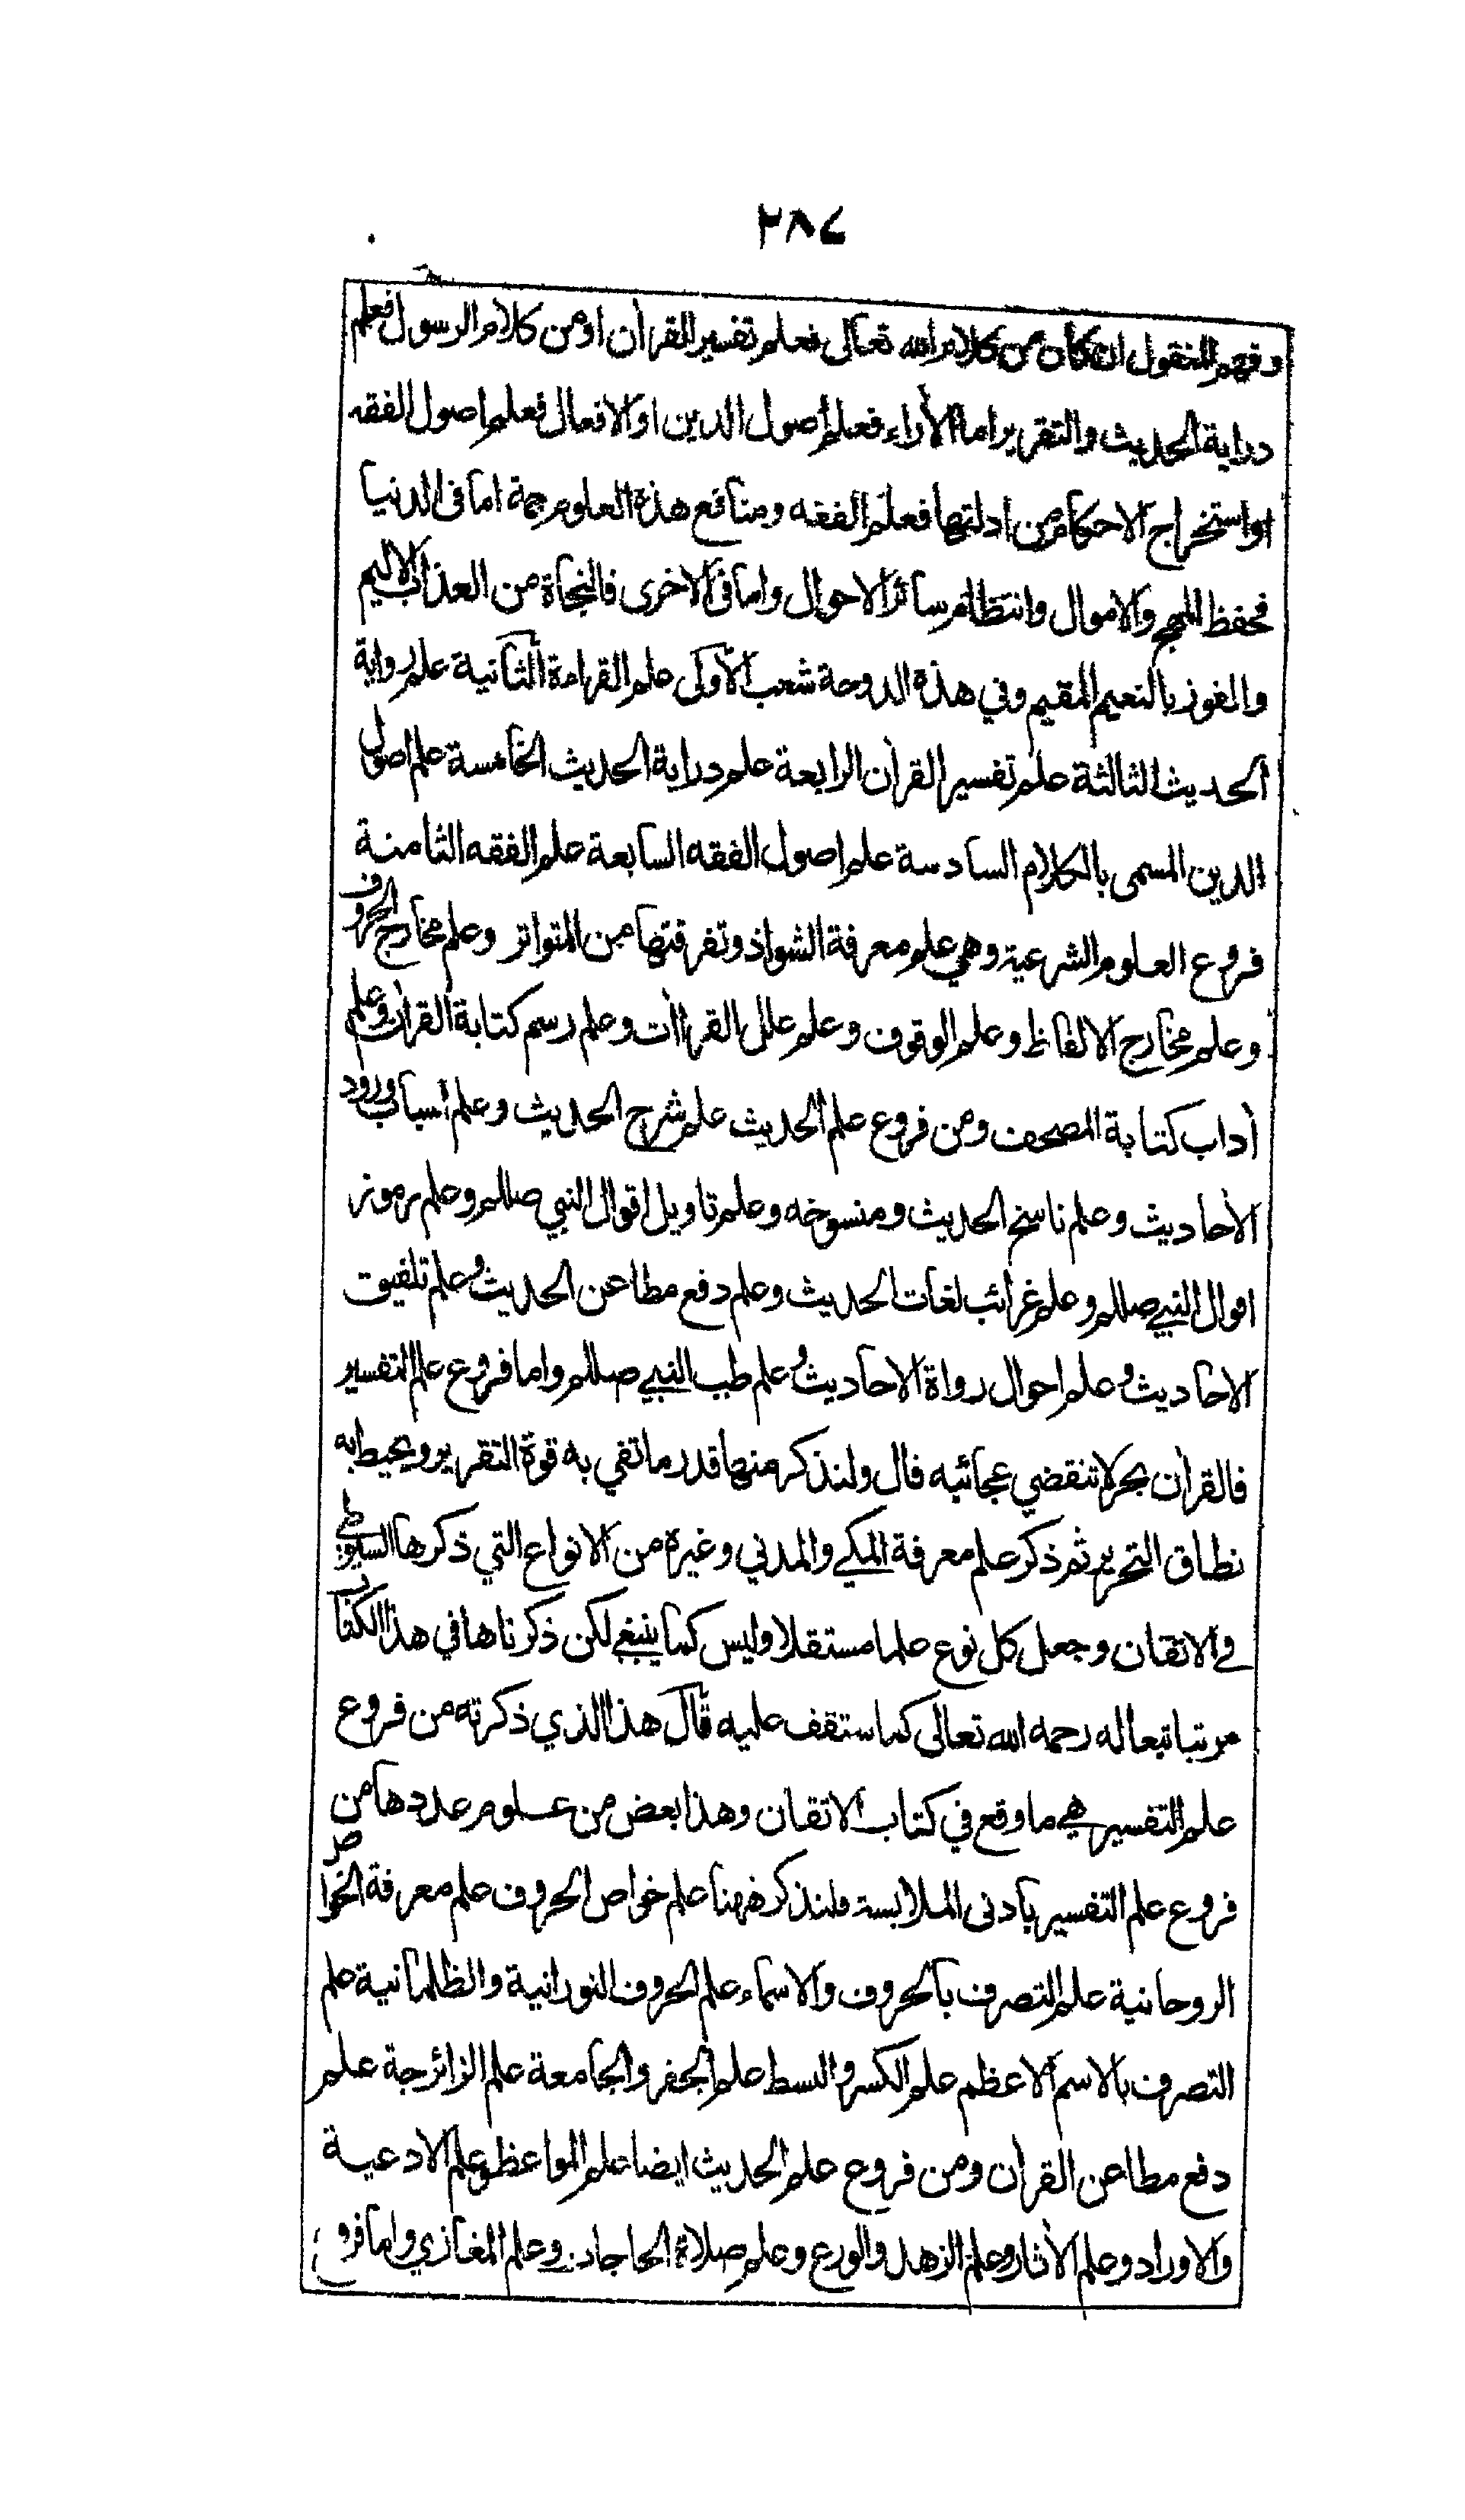 ٢٨٤
وفهم المنقول ان كان من كلام الله تعالى فعلم تفسير القرأن اومن كلام الرسول فعلم
دراية الحديث والتقرير اما الأراء فعلم أصول الدين او الافعال فعلم اصول الفقه
اواستخراج الاحكام من ادلتها فعلم الفقه ومنافع هذه العلوم جمة اما فى الدنيا
فحفظ المهج والاموال وانتظام سائر الاحوال واما فى الاخرى فالنجاة من العذاب الاليم
والفوز بالنعيم المقيم وفي هذه الدوحة شعب الأولى علم القراءة الثانية علم رواية
الحديث الثالثة علم تفسير القرأن الرابعة علم دراية الحديث الخامسة علم اصول
الدين المسمى بالكلام السادسة علم اصول الفقه السابعة علم الفقه الثامنة
فروع العلوم الشرعية وهي علم معرفة الشواذ وتفرقتها من المتواتر وعلم مخارج الحروف
وعلم مخارج الالفاظ وعلم الوقوف وعلم علل القراأت وعلم رسم كتابة القرأن وعلم
أداب كتابة المصحف ومن فروع علم الحديث علم شرح الحديث وعلم اسباب ورود
الأحاديث وعلم ناسخ الحديث ومنسوخه وعلم تاويل اقوال النبي صللم وعلم رموز
اقوال النبي صللم وعلم غرائب لغات الحديث وعلم دفع مطاعن الحديث وعلم تلفيق
الاحاديث وعلم احوال رواة الاحاديث وعلم طب النبي صللم واما فروع علم التفسير
فالقرأن بحر لا تنقضي عجائبه قال ولنذكر منها قدر ما تفي به قوة التقرير ويحيط به
نطاق التحرير ثم ذكر علم معرفة المكي والمدني وغيره من الانواع التي ذكرها السيوطي
في الاتقان وجعل كل نوع علما مستقلا وليس كما ينبغي لكن ذكرناها في هذا الكتاب
مرتبا تبعا له رحمه الله تعالى كما ستقف عليه قال هذا الذي ذكرته من فروع
علم التفسير هي ما وقع في كتاب الاتقان وهذا بعض من علوم عددها من
فروع علم التفسير بادنى الملابسة فلنذكر ههنا علم خواص الحروف علم معرفة الخواص
الروحانية علم التصرف بالحروف والاسماء علم الحروف النورانية والظلمانية علم
التصرف بالاسم الاعظم علم الكسر والبسط علم الجفر والجامعة علم الزائرجة علم
دفع مطاعن القرأن ومن فروع علم الحديث ايضا علم المواعظ وعلم الادعية
والاوراد وعلم الأثار وعلم الزهد والورع وعلم صلاة الحاجات وعلم المغازي واما فروع